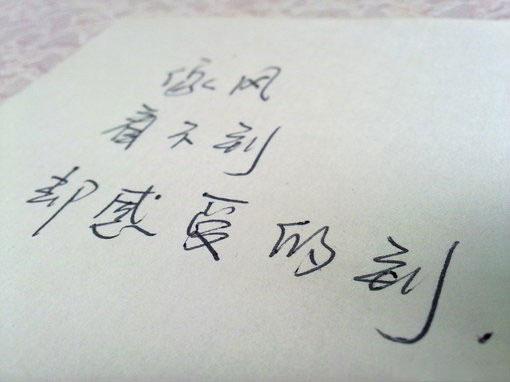 像风
看不到
却感受的到.